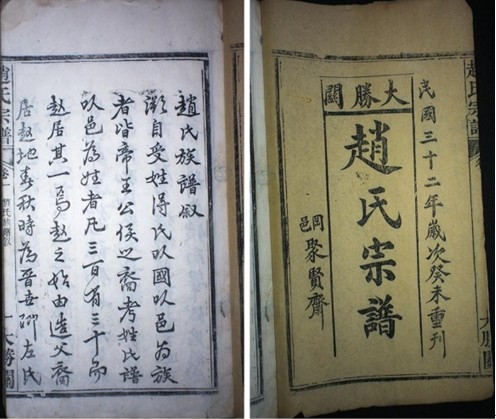 趙氏宗譜
大勝關
民國三十二年歲次癸未重刊
大勝關
趙氏宗譜
岡邑
聚賢齋
趙氏族譜叙
溯自受姓得氏以國以邑為族
者皆帝王公侯之裔考姓氏譜
以邑為姓者凡三百有三十而
趙居其一焉趙之始由造父裔
居趙地春秋時為晉世卿左氏
趙氏宗譜
卷一
一大勝關